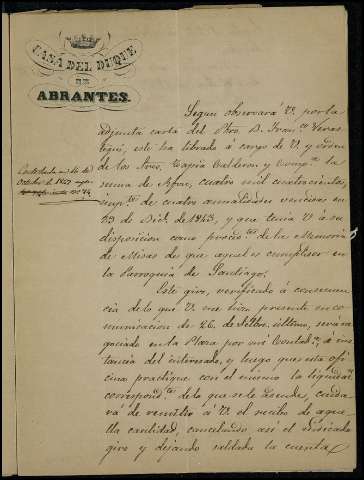 CASA DEL DUQUE
DE
ABRANTES.
Contestada en 14 de
Octubre de 1847
Segun observará V. por la
adjunta carta del Pbro. D. Fran.co Veras
tegui, este ha librado á cargo de V. y orden
de los Sres. Tapia Calderon y Comp.a la
suma de cuatro mil cuatrocientos,
imp.te de cuatro anualidades vencidas en
23 de Dic.e de 1843, y que tenia V. á su
disposicion como procedente de la Memoria
de Misas de que aquel es cumplidor en
la Parroquia de Santiago.
Este giro, verificado á consecuen
cia de lo que V. me hizo presente en co
municacion de 26 de Setbre. último, será ne
gociado en la Plaza por mi Contad.a, á ins
tancia del interesado, y luego que esta ofi
cina practique con el mismo la liquidac.n
correspond.te de lo que se le adeude, cuida
rá de remitir á V. el recibo de aque
lla cantidad, cancelando así el indicado
giro y dejando saldada la cuenta